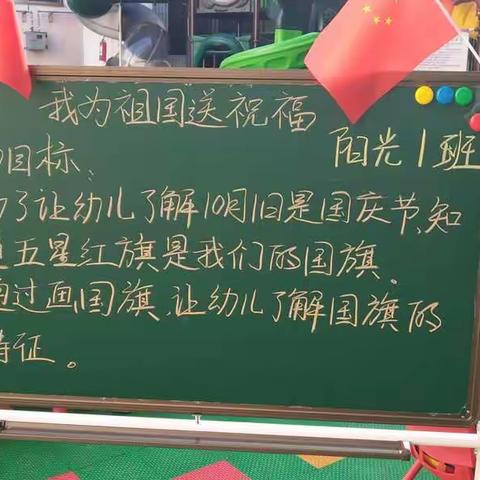 我为祖国送祝福
阳光1班
目标:
了让幼儿了解10月1日是国庆节,知
五星红旗是我们的国旗.
过画国旗,让幼儿了解国旗的
特征。